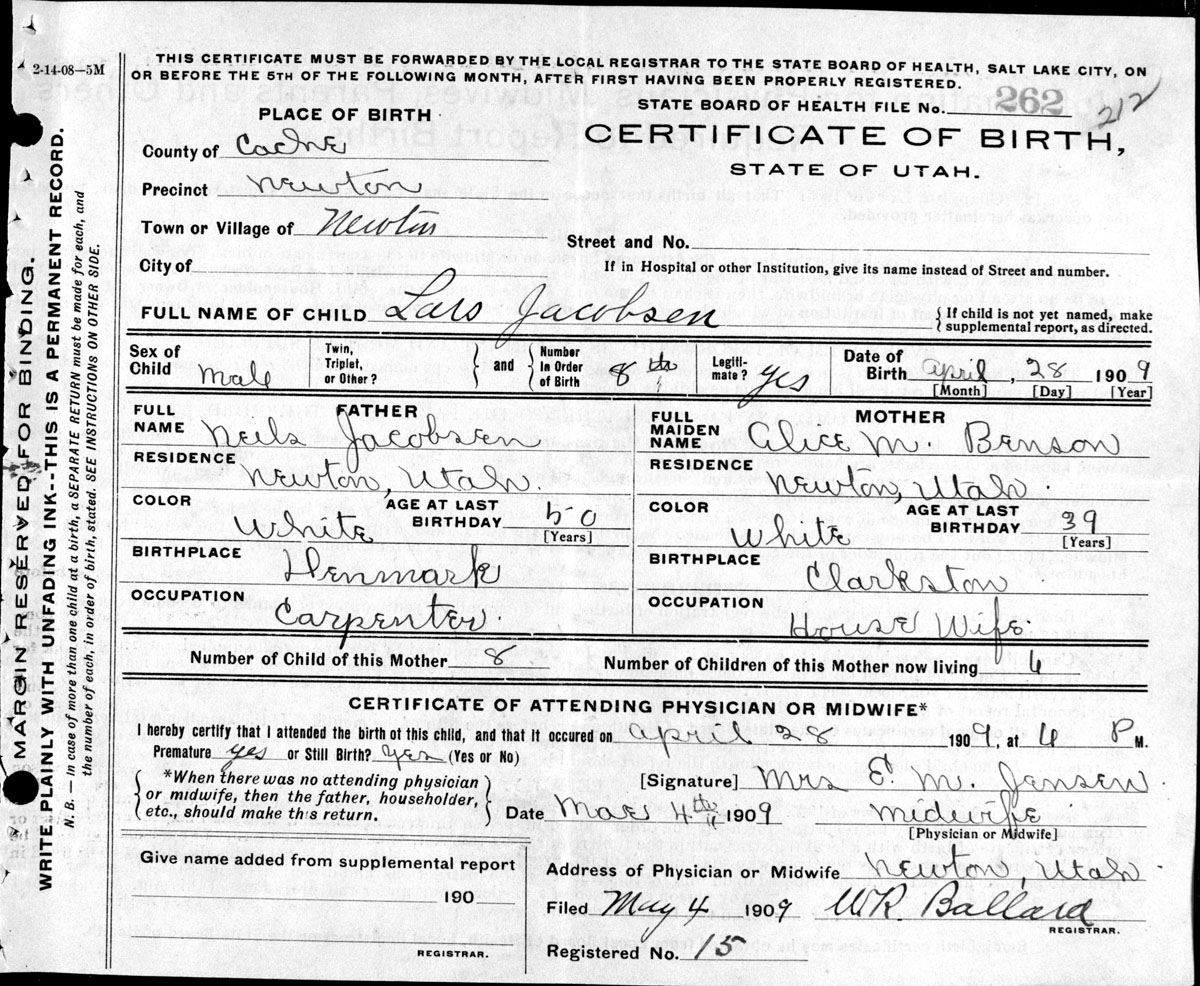 2-14-08—5M
THIS CERTIFICATE MUST BE FORWARDED BY THE LOCAL REGISTRAR TO THE STATE BOARD OF HEALTH, SALT LAKE CITY, ON
OR BEFORE THE 5TH OF THE FOLLOWING MONTH, AFTER FIRST HAVING BEEN PROPERLY REGISTERED.
STATE BOARD OF HEALTH FILE No. 262
212
PLACE OF BIRTH
CERTIFICATE OF BIRTH,
STATE OF UTAH.
County of Cache
Precinct Newton
Town or Village of Newton
Street and No.
City of
If in Hospital or other Institution, give its name instead of Street and number.
FULL NAME OF CHILD Lars Jacobsen
{ If child is not yet named, make
supplemental report, as directed.
Sex of Child Male
Twin, Triplet, or Other? } and { Number In Order of Birth 8th
Legitimate? yes
Date of Birth April, 28 1909
[Month] [Day] [Year]
FATHER
FULL NAME Neils Jacobsen
RESIDENCE Newton, Utah.
COLOR White
AGE AT LAST BIRTHDAY 50
[Years]
BIRTHPLACE Denmark
OCCUPATION Carpenter.
MOTHER
FULL MAIDEN NAME Alice M. Benson
RESIDENCE Newton, Utah.
COLOR White
AGE AT LAST BIRTHDAY 39
[Years]
BIRTHPLACE Clarkston
OCCUPATION House Wife.
Number of Child of this Mother 8
Number of Children of this Mother now living
CERTIFICATE OF ATTENDING PHYSICIAN OR MIDWIFE*
I hereby certify that I attended the birth of this child, and that it occured on April 28 1909, at P M.
Premature yes or Still Birth? Yes (Yes or No)
{ *When there was no attending physician
or midwife, then the father, householder,
etc., should make this return. }
[Signature] Mrs E. M. Jensen
Date 4th 1909
Midwife
[Physician or Midwife]
Give name added from supplemental report
190
REGISTRAR.
Address of Physician or Midwife Newton, Utah.
Filed May 4 1909 WR. Ballard
REGISTRAR.
Registered No. 15
MARGIN RESERVED FOR BINDING.
WRITE PLAINLY WITH UNFADING INK--THIS IS A PERMANENT RECORD.
N. B. — In case of more than one child at a birth, a SEPARATE RETURN must be made for each, and
the number of each, in order of birth, stated. SEE INSTRUCTIONS ON OTHER SIDE.